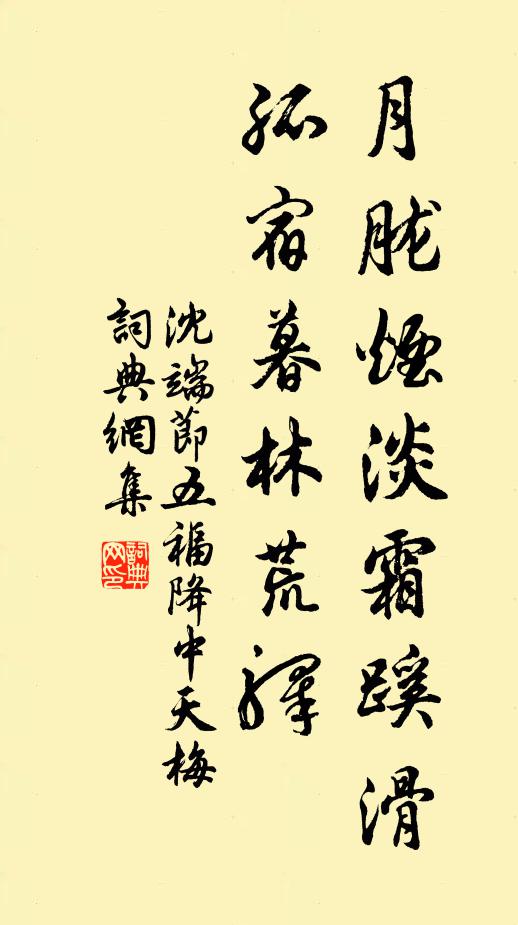 月朧煙淡霜蹊滑
孤宿暮林荒驛
沈端節五福降中天梅
詞典網集
詞典網印